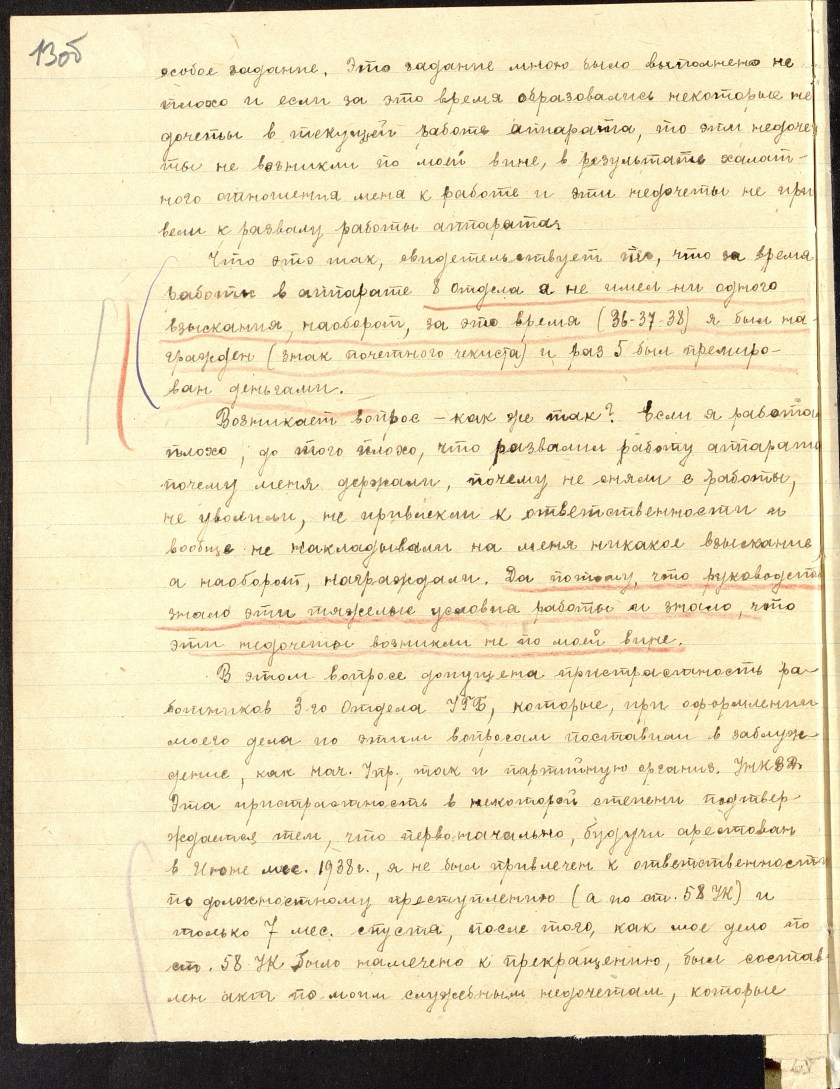 13об
особое задание. Это задание мною было выполнено не
плохо и если за это время образовались некоторые не
дочеты в текущей работе аппарата, то эти недоче
ты не возникли по моей вине, в результате халат-
ного отношения меня к работе и эти недочеты не при
вели к развалу работы аппарата.
Что это так, свидетельствует то, что за время
работы в аппарате 8 отдела я не имел ни одного
взыскания, наоборот, за это время (36-37-38) я был на-
гражден (знак почетного чекиста) и раз 5 был премиро-
ван деньгами.
Возникает вопрос – как же так? Если я работал
плохо, до того плохо, что развалил работу аппарата
почему меня держали, почему не сняли с работы,
не уволили, не привлекли к ответственности и
вообще не накладывали на меня никакое взыскание
а наоборот, награждали. Да потому, что руководство
знало эти тяжелые условия работы и знало, что
эти недочеты возникли не по моей вине.
В этом вопросе допущена пристрастность ра-
ботников 3-го Отдела УГБ, которые, при оформлении
моего дела по этим вопросам поставили в заблуж-
дение, как нач. Упр., так и партийную организ. УНКВД.
Эта пристрастность в некоторой степени подтвер-
ждается тем, что первоначально, будучи арестован
в Июне мес. 1938г., я не был привлечен к ответственности
по должностному преступлению (а по ст. 58 УК) и
только 7 мес. спустя, после того, как мое дело по
ст. 58 УК было намечено к прекращению, был состав
лен акт по моим служебным недочетам, которые